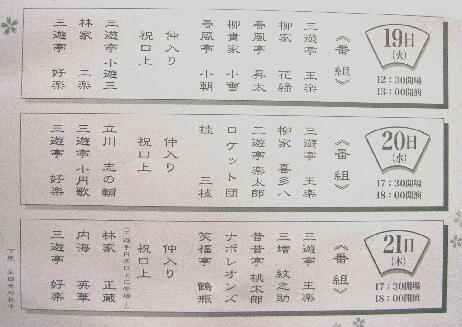 19日
(火)
12:30開場
13:00開演
《番組》
三遊亭 王楽
柳家 花緑
春風亭 昇太
柳貴家 小雪
春風亭 小朝
仲入り
祝口上
三遊亭 小遊三
林家 二楽
三遊亭 好楽
20日
(水)
17:30開場
18:00開演
《番組》
三遊亭 王楽
柳家 喜多八
三遊亭楽太郎
ロケット団
桂 三枝
仲入り
祝口上
立川 志の輔
三遊亭 小円歌
三遊亭 好楽
21日
(木)
17:30開場
18:00開演
《番組》
三遊亭 王楽
三増 紋之助
昔昔亭 桃太郎
ナポレオンズ
笑福亭 鶴瓶
仲入り
祝口上
(三遊亭円楽口上に登場!)
林家 正蔵
内海 英華
三遊亭 好楽